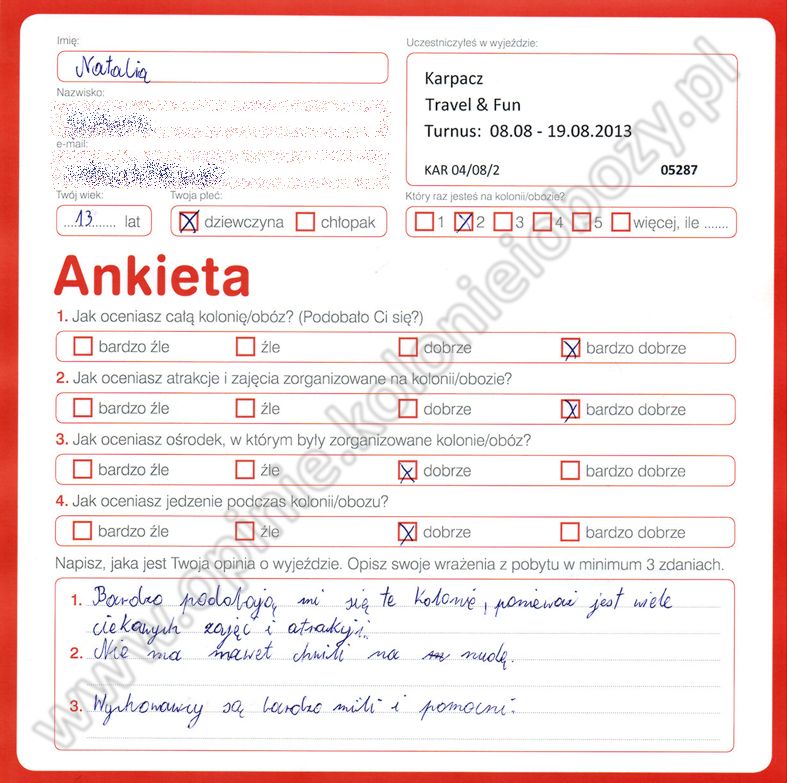 Imię:
Natalia
Uczestniczyłeś w wyjeździe:
Karpacz
Travel & Fun
Turnus: 08.08 - 19.08.2013
KAR 04/08/2 05287
Nazwisko:
e-mail:
Twój wiek:
13 lat
Twoja płeć:
dziewczyna chłopak
Który raz jesteś na kolonii/obozie?
1 2 3 4 5 więcej, ile .......
Ankieta
1. Jak oceniasz całą kolonię/obóz? (Podobało Ci się?)
bardzo źle źle dobrze bardzo dobrze
2. Jak oceniasz atrakcje i zajęcia zorganizowane na kolonii/obozie?
bardzo źle źle dobrze bardzo dobrze
3. Jak oceniasz ośrodek, w którym były zorganizowane kolonie/obóz?
bardzo źle źle dobrze bardzo dobrze
4. Jak oceniasz jedzenie podczas kolonii/obozu?
bardzo źle źle dobrze bardzo dobrze
Napisz, jaka jest Twoja opinia o wyjeździe. Opisz swoje wrażenia z pobytu w minimum 3 zdaniach.
1. Bardzo podobają mi się te kolonie, ponieważ jest wiele
ciekawych zajęć i atrakcji.
2. Nie ma nawet chwili na nudę.
3. Wychowawcy są bardzo mili i pomocni.
www.opinie.kolonieiobozy.pl